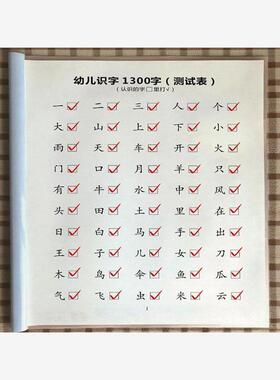 幼儿识字1300字（测试表）
（认识的字□里打√）
一☑ 二☑ 三☑ 人☑ 个☑
大☑ 山☑ 上☑ 下☑ 小☑
雨☑ 天☑ 车☑ 开☑ 火☑
门☑ 口☑ 月☑ 羊☑ 只☑
有☑ 牛☑ 水☑ 中☑ 风☑
头☑ 田☑ 土☑ 里☑ 在☑
日☑ 白☑ 马☑ 手☑ 出☑
王☑ 子☑ 儿☑ 女☑ 刀☑
木☑ 鸟☑ 伞☑ 鱼☑ 瓜☑
气☑ 飞☑ 虫☑ 米☑ 云☑
1